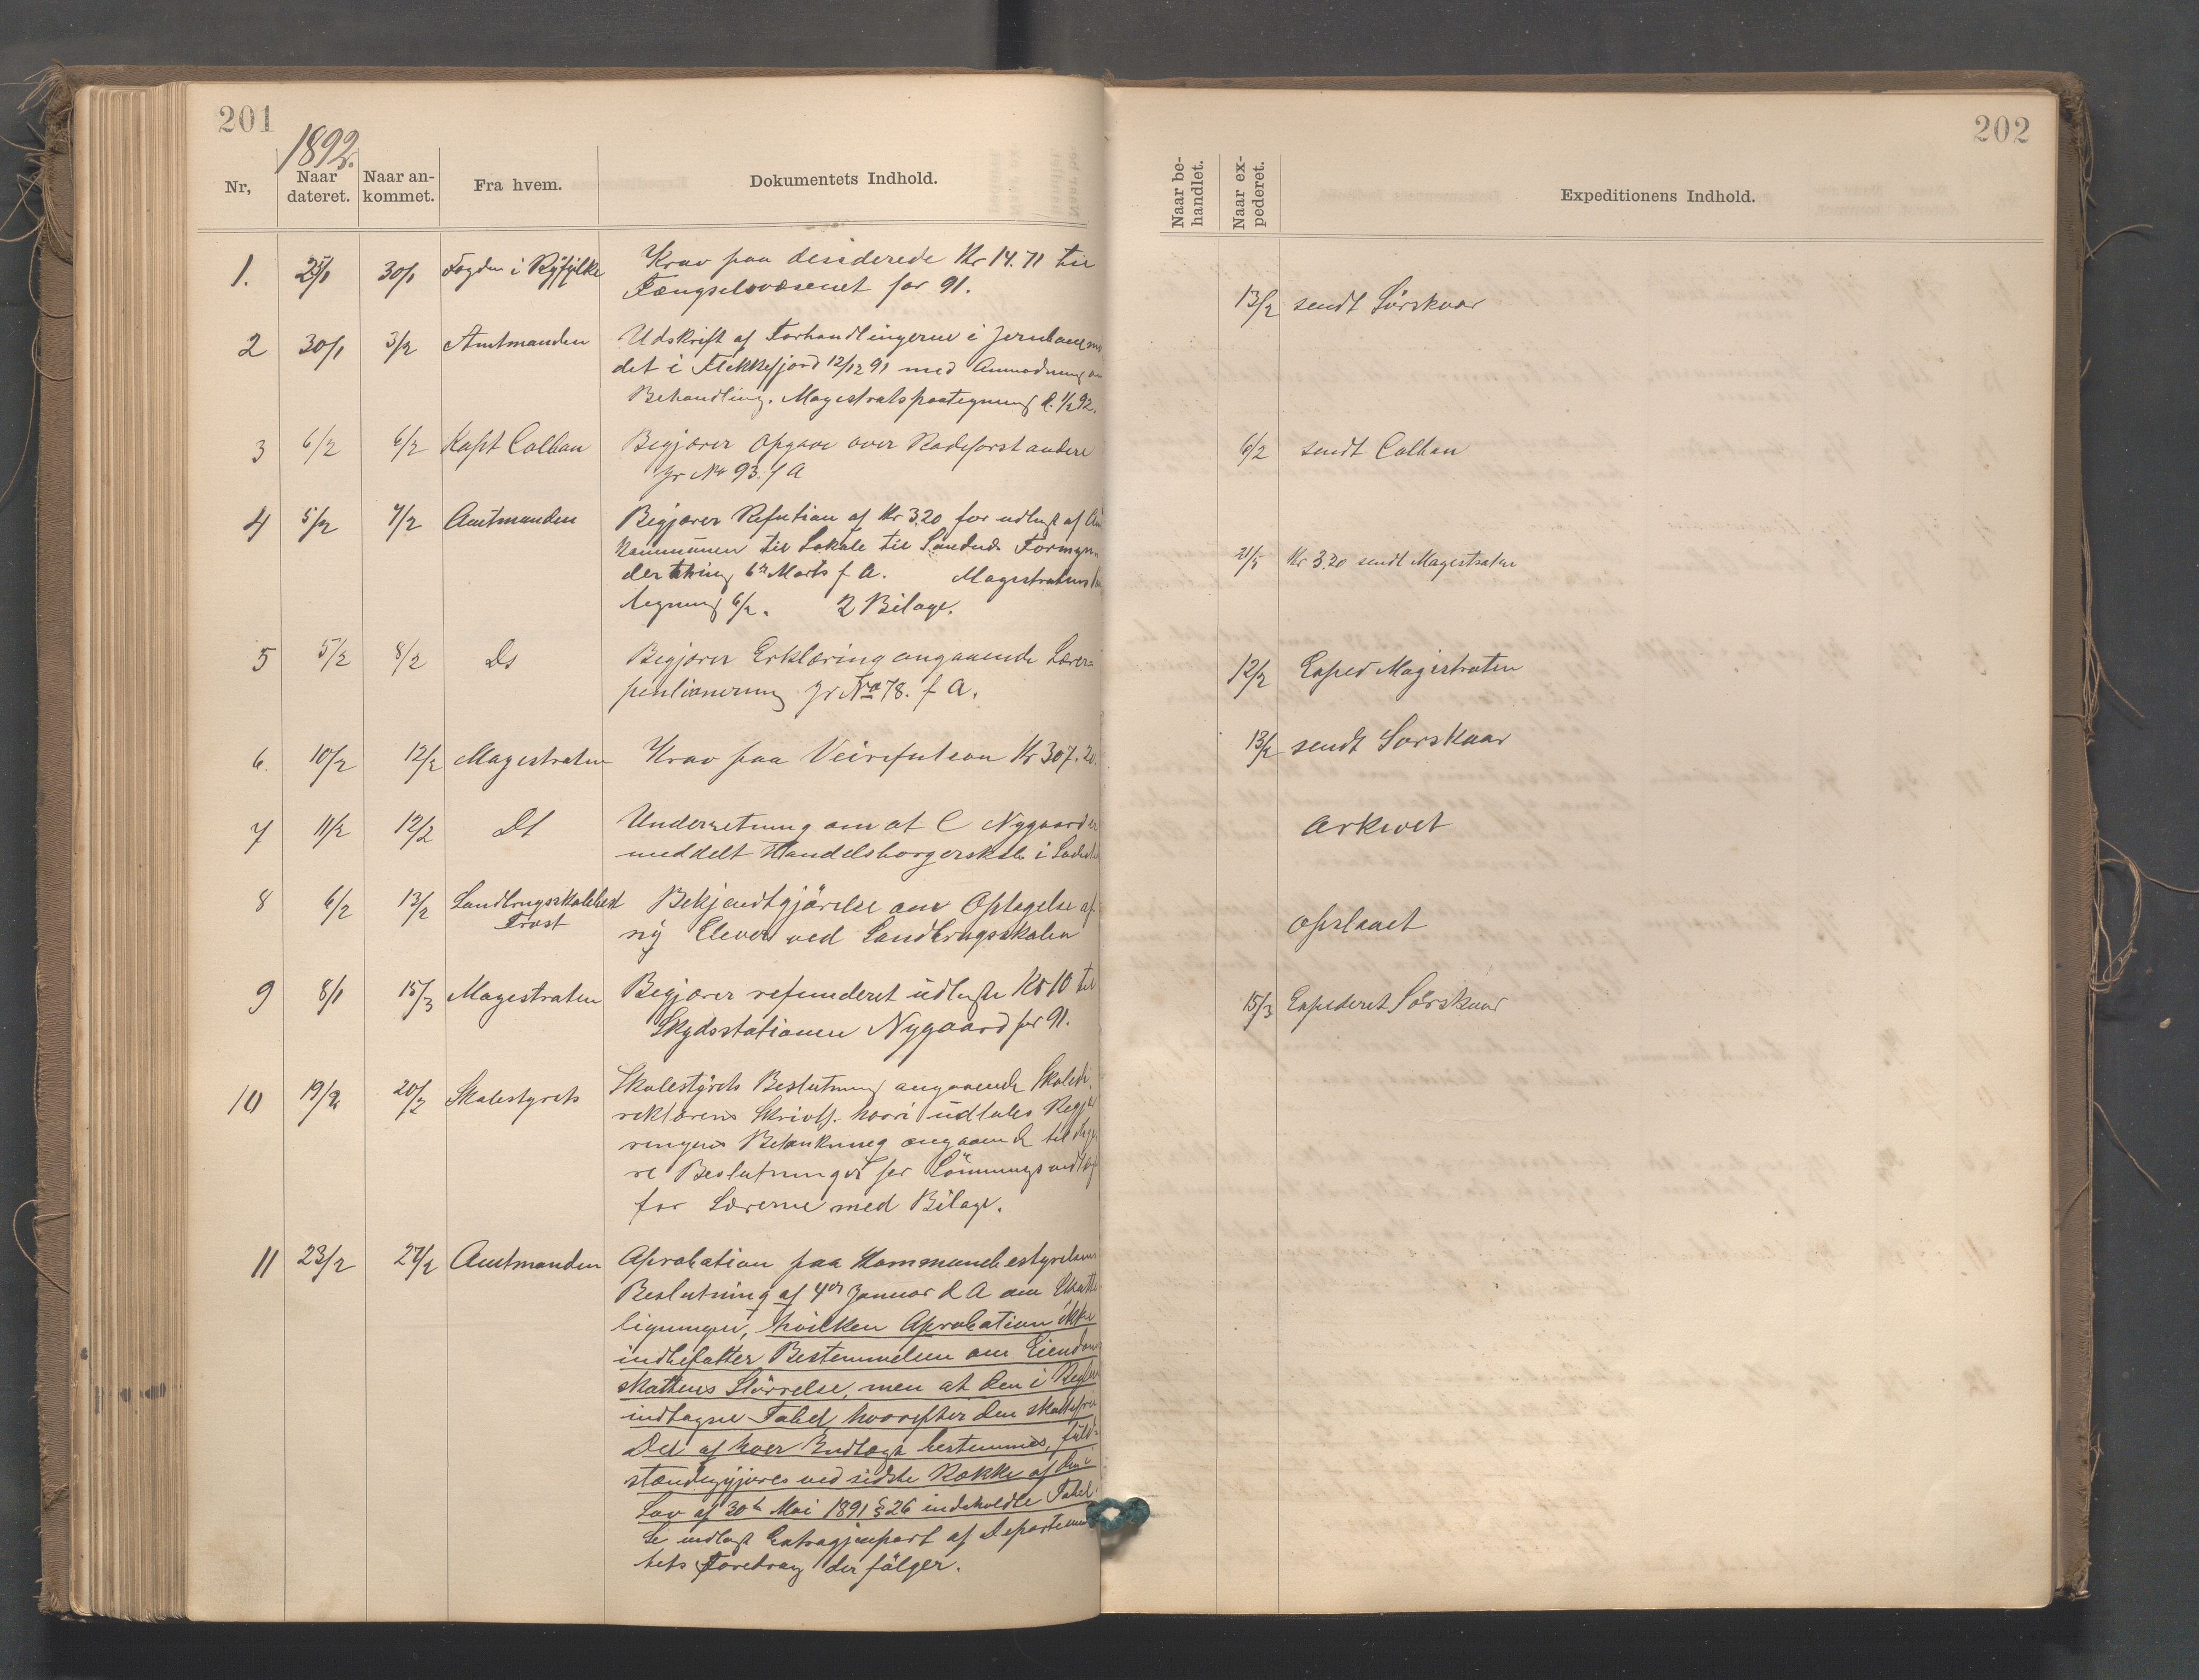 201
1892.
Nr, Naar dateret. Naar an-kommet. Fra hvem. Dokumentets Indhold.
1. 25/1 30/1 Fogden i Ryfylke Krav paa desiderede Kr 14.71 til
Fængselsvæsenet for 91.
2 30/1 3/2 Amtmanden Udskrift af Forhandlingerne i
det i Flekkefjord 12/12 91 med Anmodning om
Behandling. Magistratspaategning d. 1/2 92.
3 6/2 6/2 Kapt Callan Begjærer Opgave over Rodeforstandere
jr No 93. f A
4 5/2 7/2 Amtmanden Begjærer Refution af Kr 3.20 for udlagt af
Kommunen til Lokale til
6te Marts f A. Magistratens
tegning 6/2. 2 Bilage.
5 5/2 8/2 Ds Begjærer Erklæring angaaende Lærer-
pentionering jr No 78. f A.
6. 10/2 12/2 Magistraten Krav paa Veirefution Kr 307.20.
7 11/2 12/2 Ds Underretning om at C Nygaard er
meddelt Handelsborgerskab i
8 6/2 13/2 Landbrugsskolebest
Frost
Bekjendtgjörelse om Optagelse af
ny Elever ved Landbrugsskolen
9 8/1 15/3 Magestraten Begjærer refunderet udlagte Kr 10 til
Skydsstationen Nygaard for 91.
10 19/2 20/2 Skolestyrets Skolestyrets Beslutning angaaende Skoledi-
rektörens Skriv. hvori udtales
ringens Betænkning angaaende
re Beslutninger
for Lærerne med Bilage.
11 23/2 27/2 Amtmanden Aprobation paa Kommunebestyrelsens
Beslutning af 4de Januar d A om Skatte
ligningen, hvilken Aprobation ikke
indbefatter Bestemmelsen om Eiendoms
skattens Störrelse, men at den i
indtagne Tabel hvorefter den skattefrie
Del af hver Indtægt bestemmes, fuld-
stændiggjöres ved sidste Række af den i
Lov af 30te Mai 1891 § 26 indeholdte Tabel.
Se indlagt Extragjenpart af Departemen
tets Foredrag der fölger.
202
Naar be-handlet. Naar ex-pederet. Expeditionens Indhold.
13/2 sendt Sörskaar
6/2 sendt Callan
21/5 Kr 3.20 sendt Magestraten
12/2 Exped Magistraten
13/2 sendt Sorskaar
Arkivet
Opslaaet
15/3 Expederet Sörskaar